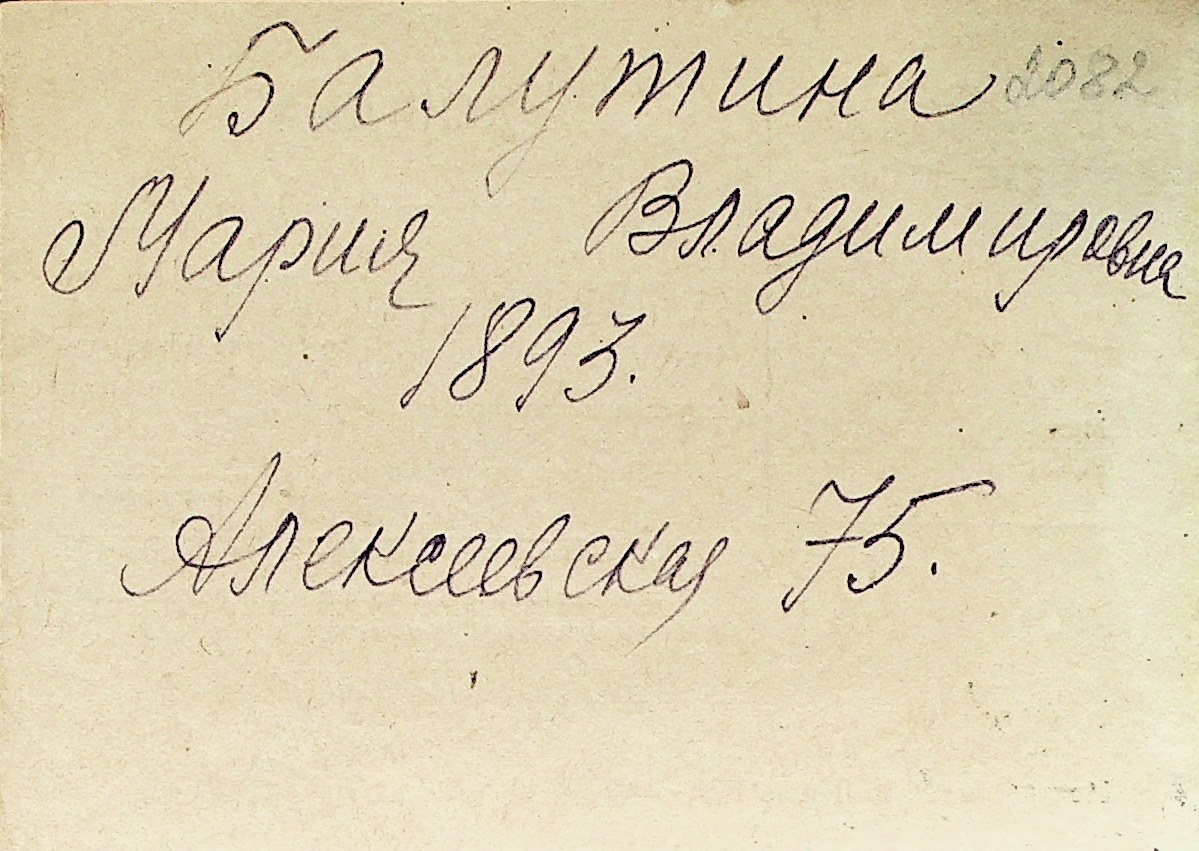 Балутина 2082
Мария Владимировна
1893.
Алексеевская 75.